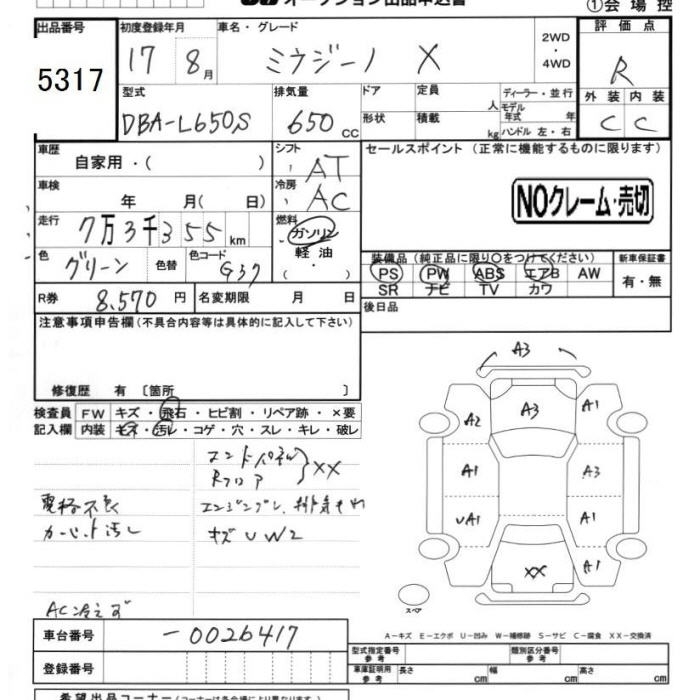 オークション出品申込書
①会場控
出品番号 初度登録年月 車名・グレード 2WD・4WD 評価点
5317 17 8月 ミラジーノ X R
型式 排気量 ドア 定員 人 ディーラー・並行 外装 内装
モデル年式 年
DBA-L650S 650cc 形状 積載 kg ハンドル 左・右 C C
車歴 シフト セールスポイント(正常に機能するものに限ります)
自家用・( ) AT
車検 冷房
年 月( 日) AC NOクレーム・売切
走行 燃料
7万3千355km ガソリン
軽油
(・)
色 グリーン 色替 色コード G37
装備品(純正品に限り○をつけてください) 新車保証書
PS PW ABS エアB AW 有・無
SR ナビ TV カワ
R券 8,570円 名変期限 月 日 後日品
注意事項申告欄(不具合内容等は具体的に記入して下さい)
修復歴 有 〔箇所 〕
検査員 FW キズ・飛石・ヒビ割・リペア跡・×要
記入欄 内装 キズ・汚レ・コゲ・穴・スレ・キレ・破レ
エンドパネル
Rフロア
XX
電格不良
カーペット汚レ
キズUW2
AC冷えず
A3
A2 A3 A1
A1 A3
UA1 A1
XX A1
スペア
車台番号 -0026417
A-キズ E-エクボ U-凹み W-補修跡 S-サビ C-腐食 XX-交換済
型式指定番号 参考 類別区分番号 参考
登録番号 車庫証明用 参考 長さ cm 幅 cm 高さ cm
希望出品コーナー